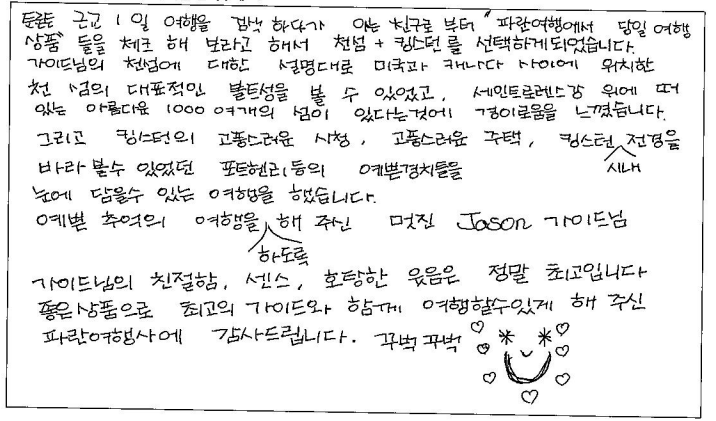 토론토 근교 1일 여행을 검색 하다가 아는 친구로 부터 "파란여행에서 당일 여행
상품" 들을 체크 해 보라고 해서 천섬 + 킹스턴를 선택하게되었습니다.
가이드님의 천섬에 대한 설명대로 미국과 캐나다 사이에 위치한
천 섬의 대표적인 볼트성을 볼 수 있었고, 세인트로렌스강 위에 떠
있는 아름다운 1000여개의 섬이 있다는것에 경이로움을 느꼈습니다.
그리고 킹스턴의 고풍스러운 시청, 고풍스러운 주택, 킹스턴 시내 전경을
바라 볼수 있었던 포트헨리등의 예쁜경치들을
눈에 담을수 있는 여행을 했습니다.
예쁜 추억의 여행을 하도록 해 주신 멋진 Jason 가이드님
가이드님의 친절함, 센스, 호탕한 웃음은 정말 최고입니다
좋은상품으로 최고의 가이드와 함께 여행할수있게 해 주신
파란여행사에 감사드립니다. 꾸벅꾸벅